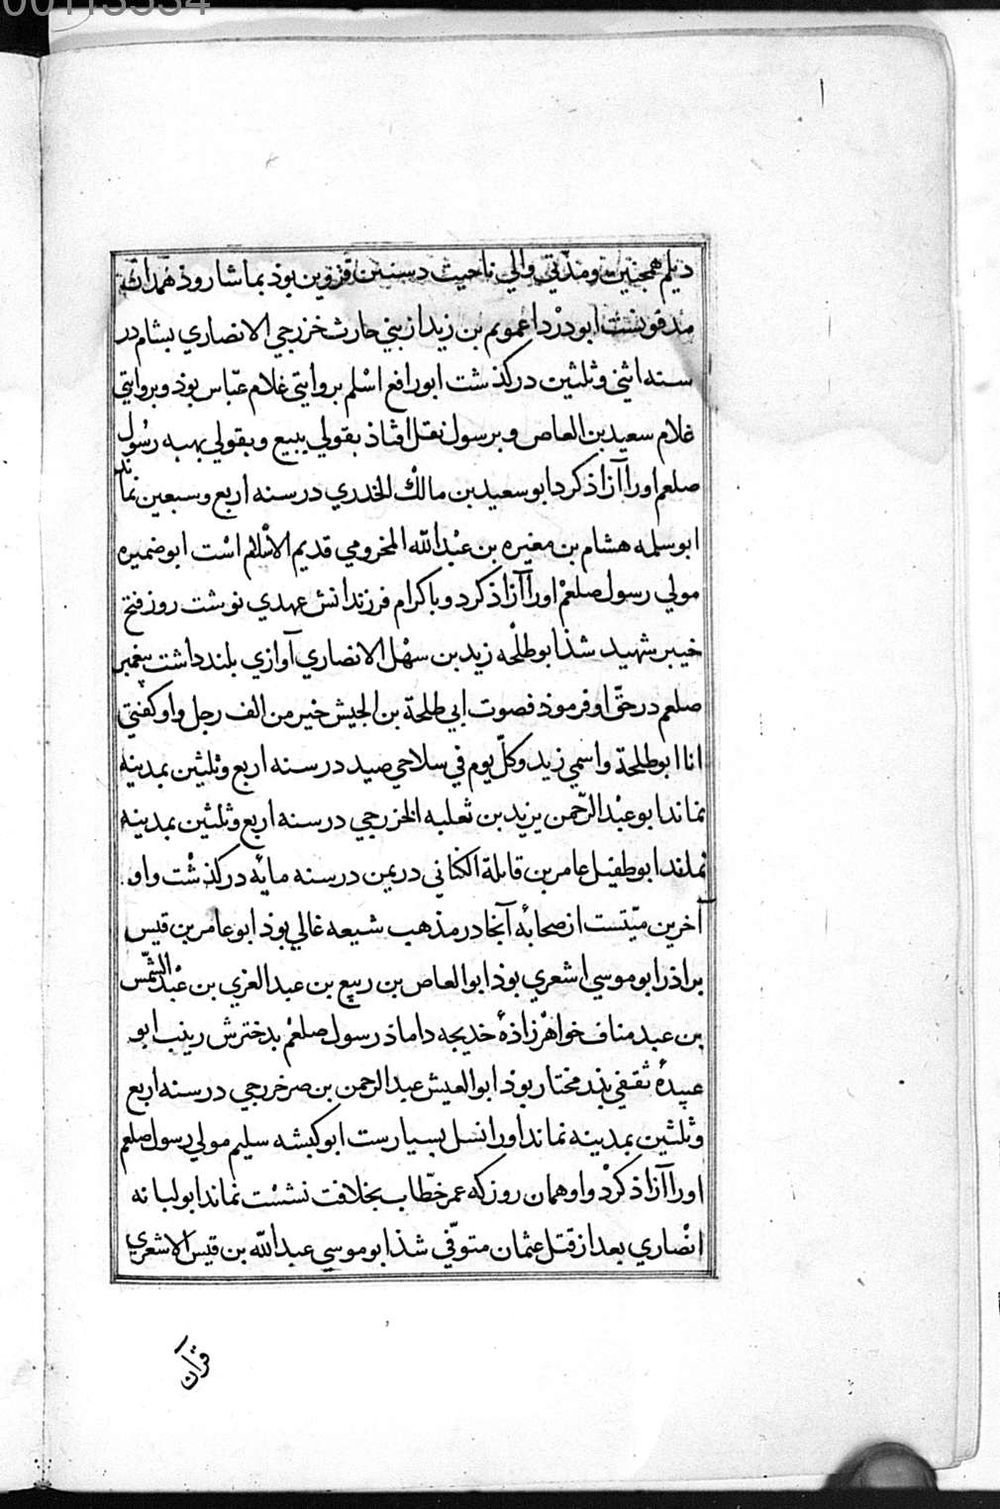 00113534
دیلم همچنین و مدتی والی ناحیت دستبی قزوین بوذ بماشاروذ همدان
مدفونست ابودردا عمویم بن زید از بنی حارث خزرجی الانصاری بشام در
سنه اثنی و ثلثین درکذشت ابورافع اسلم بروایتی غلام عباس بوذ و بروایتی
غلام سعید بن العاص و برسول نقل افتاذ بقولی ببیع و بقولی بهبه رسول
صلعم اورا آزاذ کرد ابوسعید بن مالك الخدری در سنه اربع و سبعین نماند
ابوسلمه هشام بن مغیره بن عبدالله المخرومی قدیم الاسلام است ابوضمیره
مولی رسول صلعم اورا آزاذ کرد و باکرام فرزندانش عهدی نوشت روز فتح
خیبر شهید شذ ابوطلحه زید بن سهل الانصاری آوازی بلند داشت پیغمبر
صلعم در حق او فرموذ فصوت ابی طلحة بن الجیش خیر من الف رجل واو کفتی
انا ابوطلحة واسمی زید وکل یوم فی سلاحی صید در سنه اربع و ثلثین بمدینه
نماند ابوعبدالرحمن یزید بن ثعلبه الخزرجی در سنه اربع و ثلثین بمدینه
نماند ابوطفیل عامر بن قابلة الکنانی در یمن در سنه مایه درکذشت واو
آخرین میتست از صحابه آنجا در مذهب شیعه غالی بوذ ابوعامر بن قیس
براذر ابوموسی اشعری بوذ ابوالعاص بن ربیع بن عبدالعزی بن عبدالشمس
بن عبد مناف خواهرزاذهٔ خدیجه داماذ رسول صلعم بدخترش زینب ابو
عبیدهٔ ثقفی بذر مختار بوذ ابوالعیش عبدالرحمن بن صرخزرجی در سنه اربع
و ثلثین بمدینه نماند اورا نسل بسیارست ابوکبشه سلیم مولی رسول صلعم
اورا آزاذ کرد واو همان روز که عمر خطاب بخلافت نشست نماند ابولبانه
انصاری بعد از قتل عثمان متوفی شذ ابوموسی عبدالله بن قیس الاشعری
قرآن